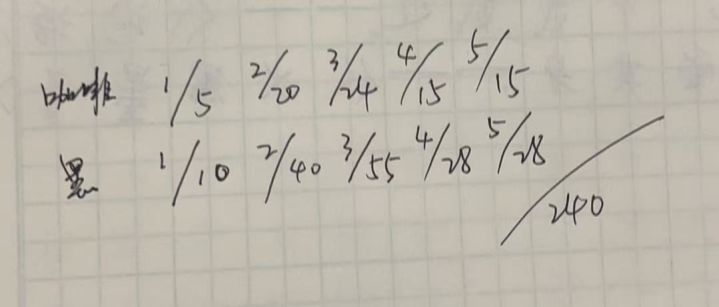 咖啡 1/5 2/20 3/24 4/15 5/15
黑 1/10 2/40 3/55 4/28 5/28
/240